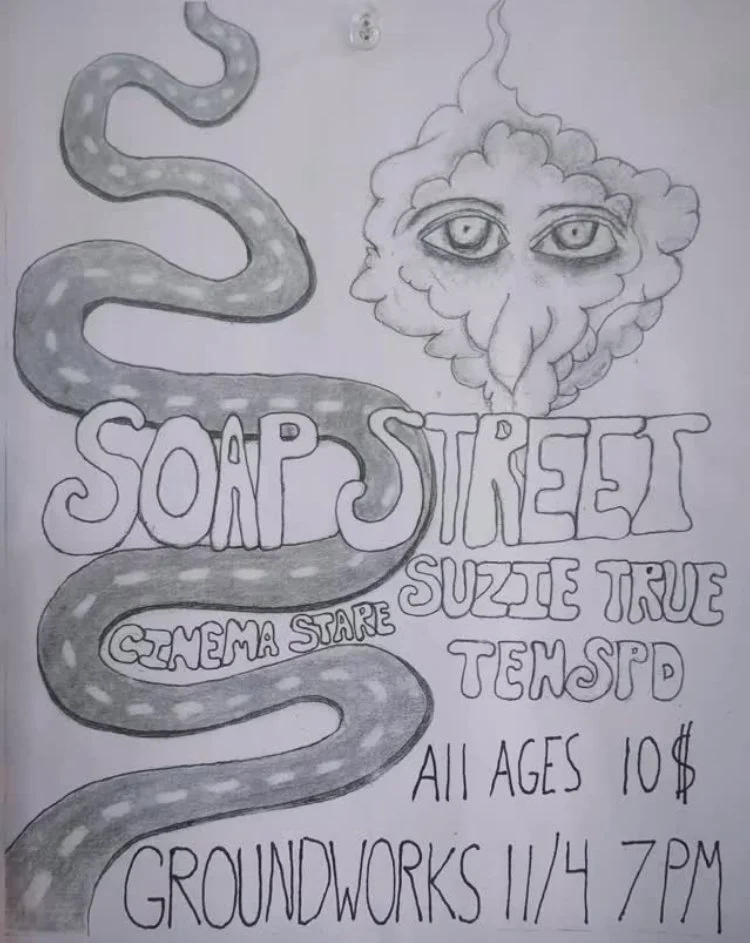 SOAP STREET
SUZIE TRUE
CINEMA STARE
TENSPD
All AGES 10$
GROUNDWORKS 11/4 7PM